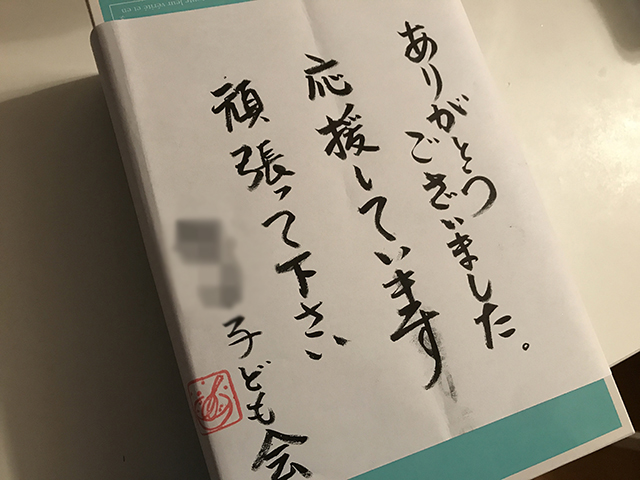 ありがとう
ございました。
応援しています
頑張って下さい
子ども会